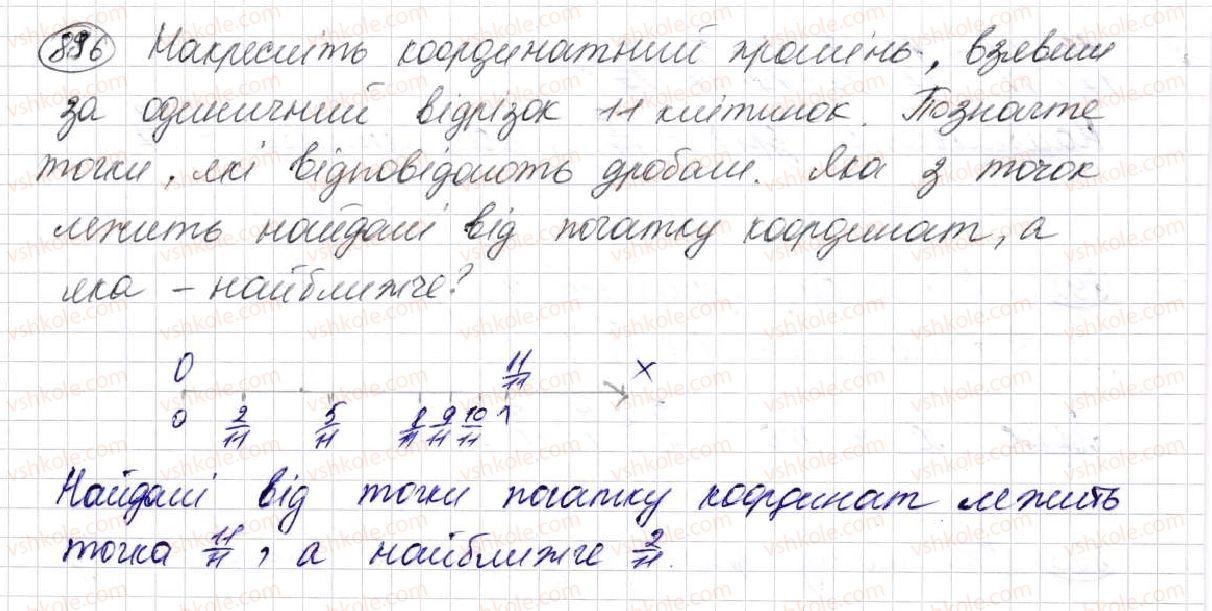 896 Накресліть координатний промінь, взявши
за одиничний відрізок 11 клітинок. Позначте
точки, які відповідають дробам. Яка з точок
лежить найдалі від початку координат, а
яка – найближче?
0 11/11 x
0 2/11 5/11 8/11 9/11 10/11 1
Найдалі від точки початку координат лежить
точка 11/11, а найближче 2/11.